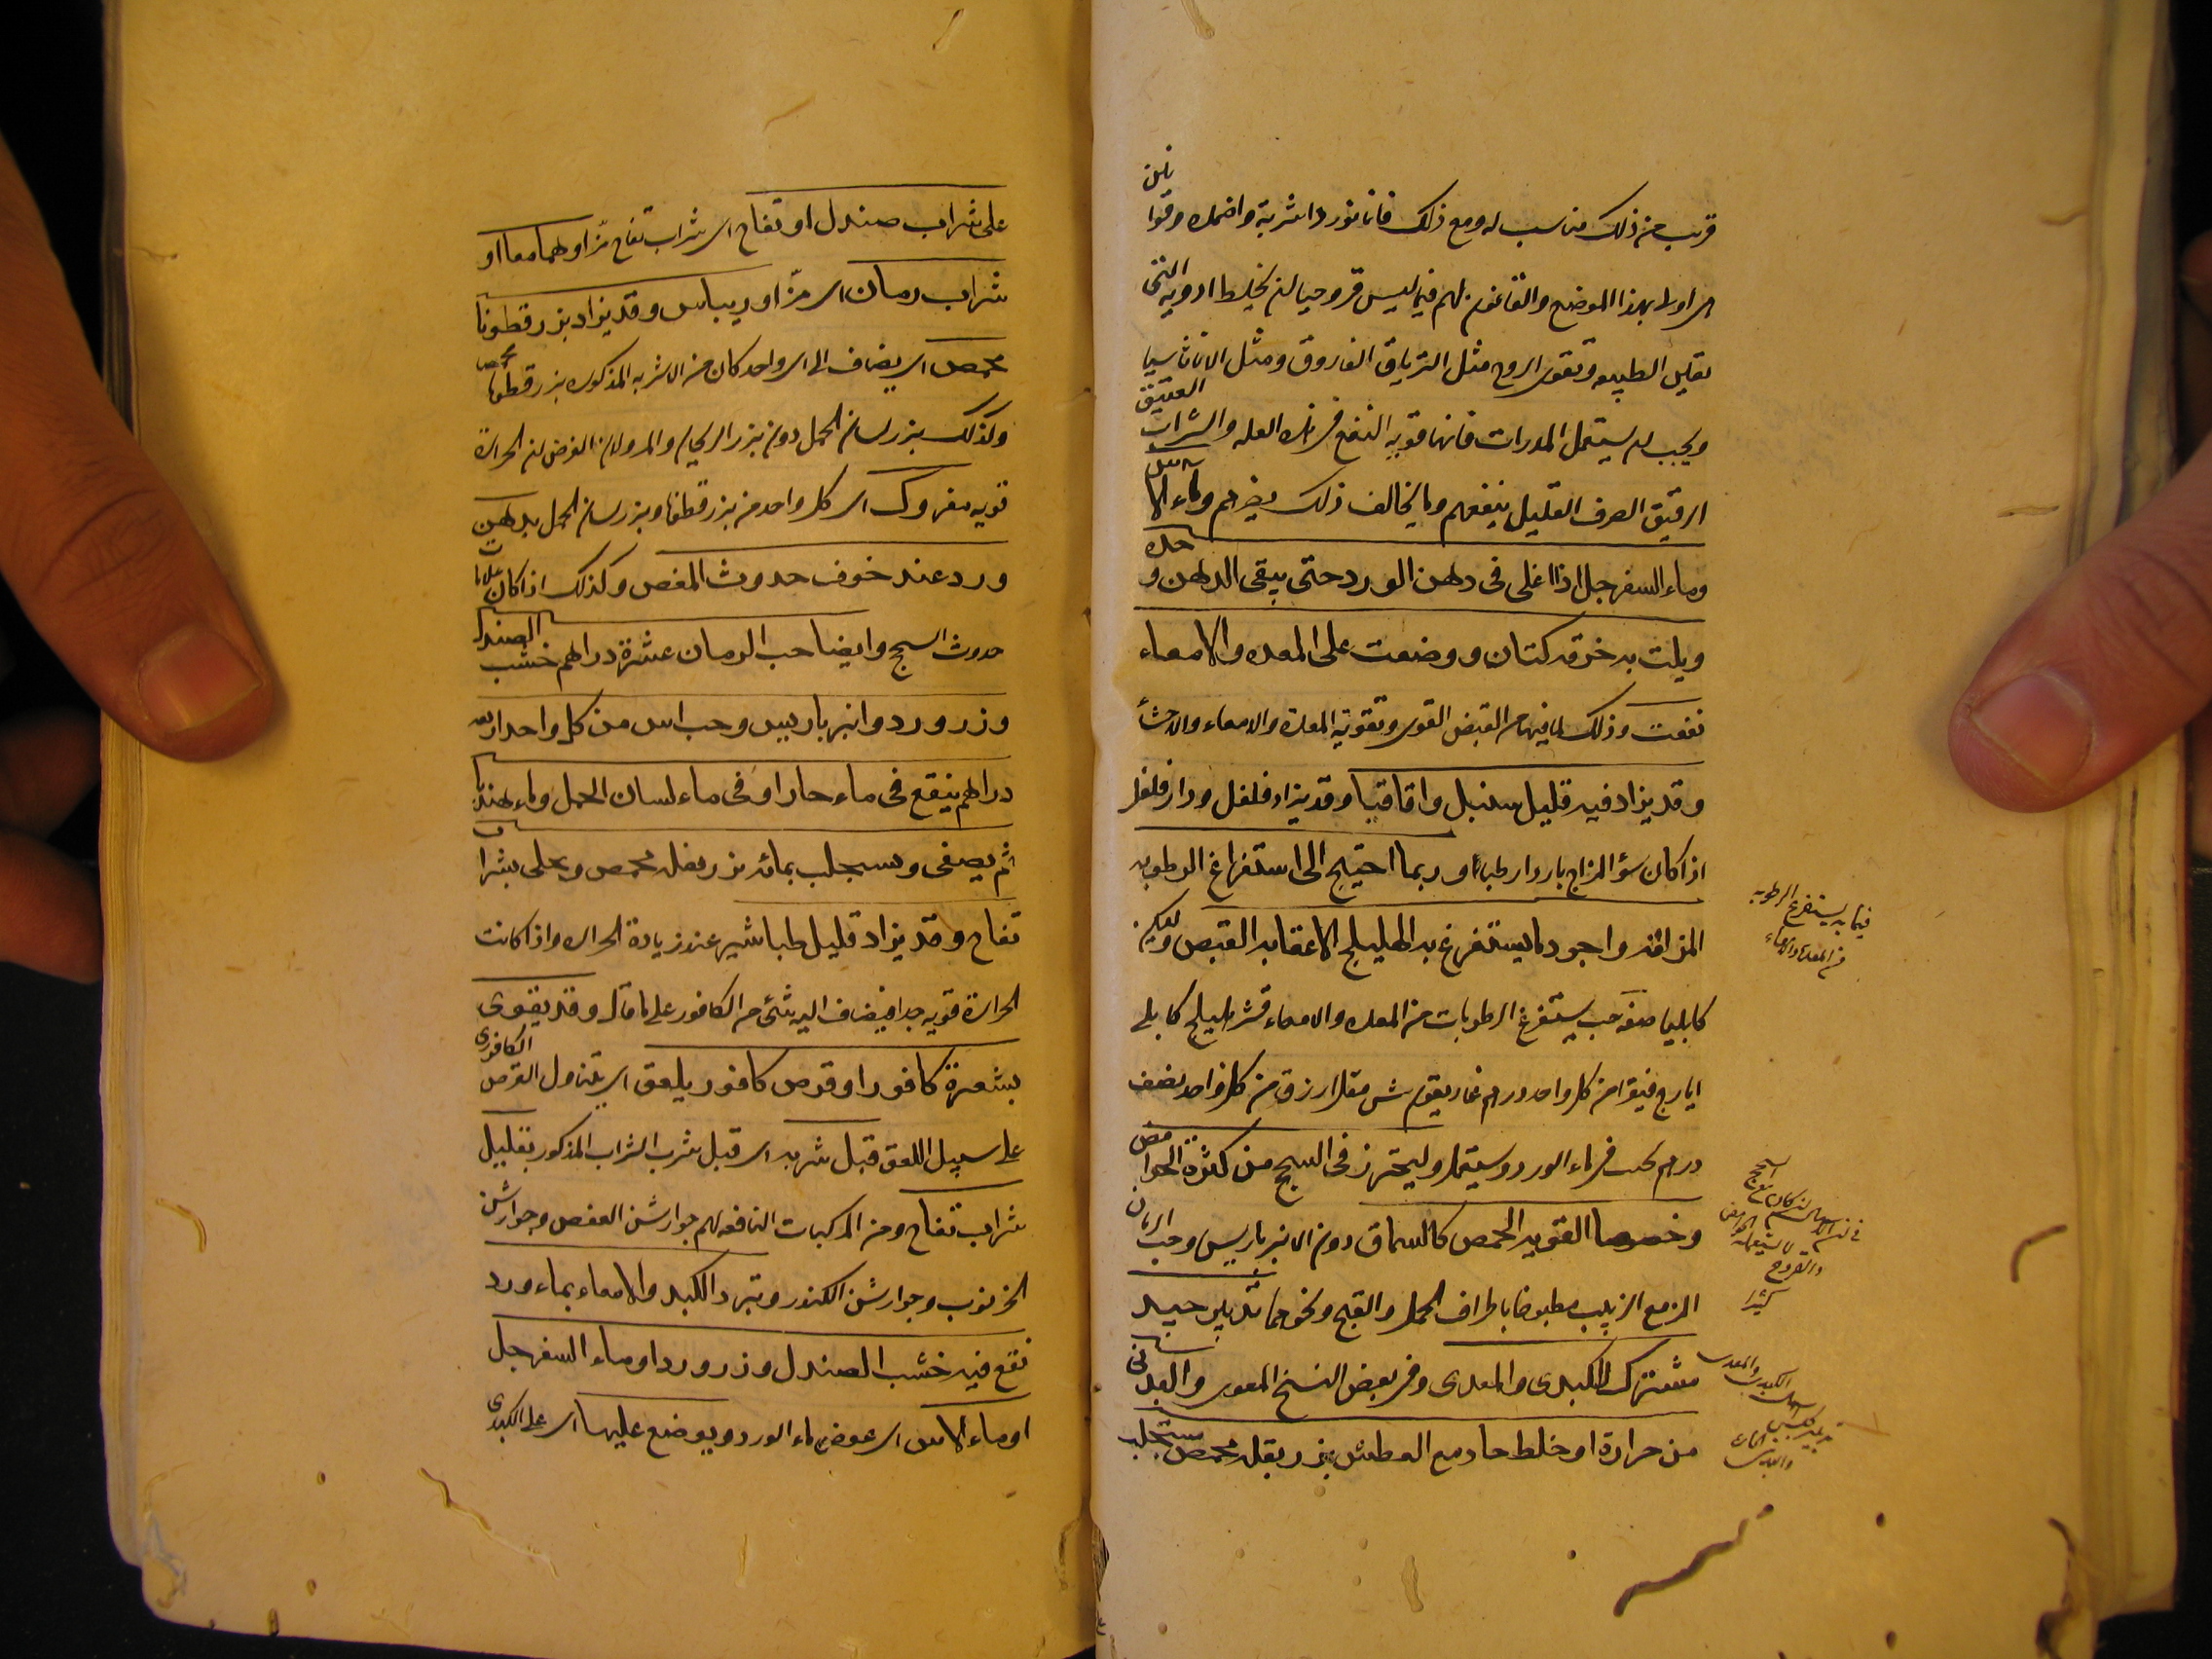 قريب من ذلك مناسب له ومع ذلك فانا نورد اشربة واضمدة وقوانين
هى اولى بهذا الموضع والقانون لهم فيما ليس قروحيا ان يخلط ادوية
بقليل الطبيعه وتقوى الروح مثل الترياق الفاروق ومثل الاثاناسيا
ويجب ان يستعمل المدرات فانها قوية النفع فى هذه العله والشراب العتيق
الرقيق الصرف القليل ينفعهم وما يخالف ذلك يضرهم وماء الاس
وماء السفرجل اذا اغلى فى دهن الورد حتى يبقى الدهن وحده
ويلت به خرقه كتان ووضعت على المعده والامعاء
نفعت وذلك لما فيها من القبض القوى وتقوية المعدة والامعاء والاحشأ
وقد يزاد فيه قليل سنبل واقاقيا وقد يزاد فلفل ودار فلفل
اذا كان سؤ المزاج باردا رطبا وربما احتيج الى استفراغ الرطوبه
المزلقه واجود ما يستفرغ به الهليلج لاعقابه القبض وليكن
كابليا صفة حب يستفرغ الرطوبات من المعده والامعاء قشر هليلج كابلى
ايارج فيقرا من كل واحد درهم غاريقون مقل ازرق من كل واحد نصف
درهم يحبب فى ماء الورد ويستعمل وليحترز فى السحج من كثرة الحوامض
وخصوصا القويه الحمض كالسماق دون الانبرباريس وحب الرمان
المز مع الزبيب مطبوخا باطراف الحمل والقبج ونحوهما تدبير جيد
مشترك للكبدى والمعدى وفى بعض النسخ المعوى والبدنى
من حرارة او خلط حاد مع العطش بزر بقله محمص يستحلب
فيما به يستفرغ الرطوبه
من المعدة والامعاء
على شراب صندل او تفاح اى شراب تفاح مزّ او هما معا او
شراب رمان اى مزّ او ريباس وقد يزاد بزر قطونا
محمص اى يضاف الى اى واحد كان من الاشربه المذكوره بزر قطونا محمص
وكذلك بزر لسان الحمل دون بزر الريحان والمرو لان الغرض ان الحرارة
قويه مفروك اى كل واحد من بزر قطونا وبزر لسان الحمل بدهن
ورد عند خوف حدوث المغص وكذلك اذا كان علامات
حدوث السحج وايضا حب الرمان عشرة دراهم خشب الصندل
وزر ورد وانبرباريس وحب اس من كل واحد اربعه
دراهم ينقع فى ماء حار او فى ماء لسان الحمل وماء هندبا
ثم يصفى ويستحلب بمائه بزر بقله محمص ويحلى بشراب
تفاح وقد يزاد قليل طباشير عند زيادة الحراره واذا كانت
الحرارة قويه جدا فيضاف اليه شئ من الكافور على ما قال وقد يقوى
بشعيرة كافور او قرص كافور يلعق اى يتناول القرص الكافورى
على سبيل اللعق قبل شربه اى قبل شرب الشراب المذكور بقليل
شراب تفاح ومن المركبات النافعه لهم جوارشن العفص وجوارشن
الخرنوب وجوارشن الكندر وتبرد الكبد والامعاء بماء ورد
نقع فيه خشب الصندل وزر ورد او ماء السفرجل
او ماء الاس اى عوض ماء الورد ويوضع عليها اى على الكبد